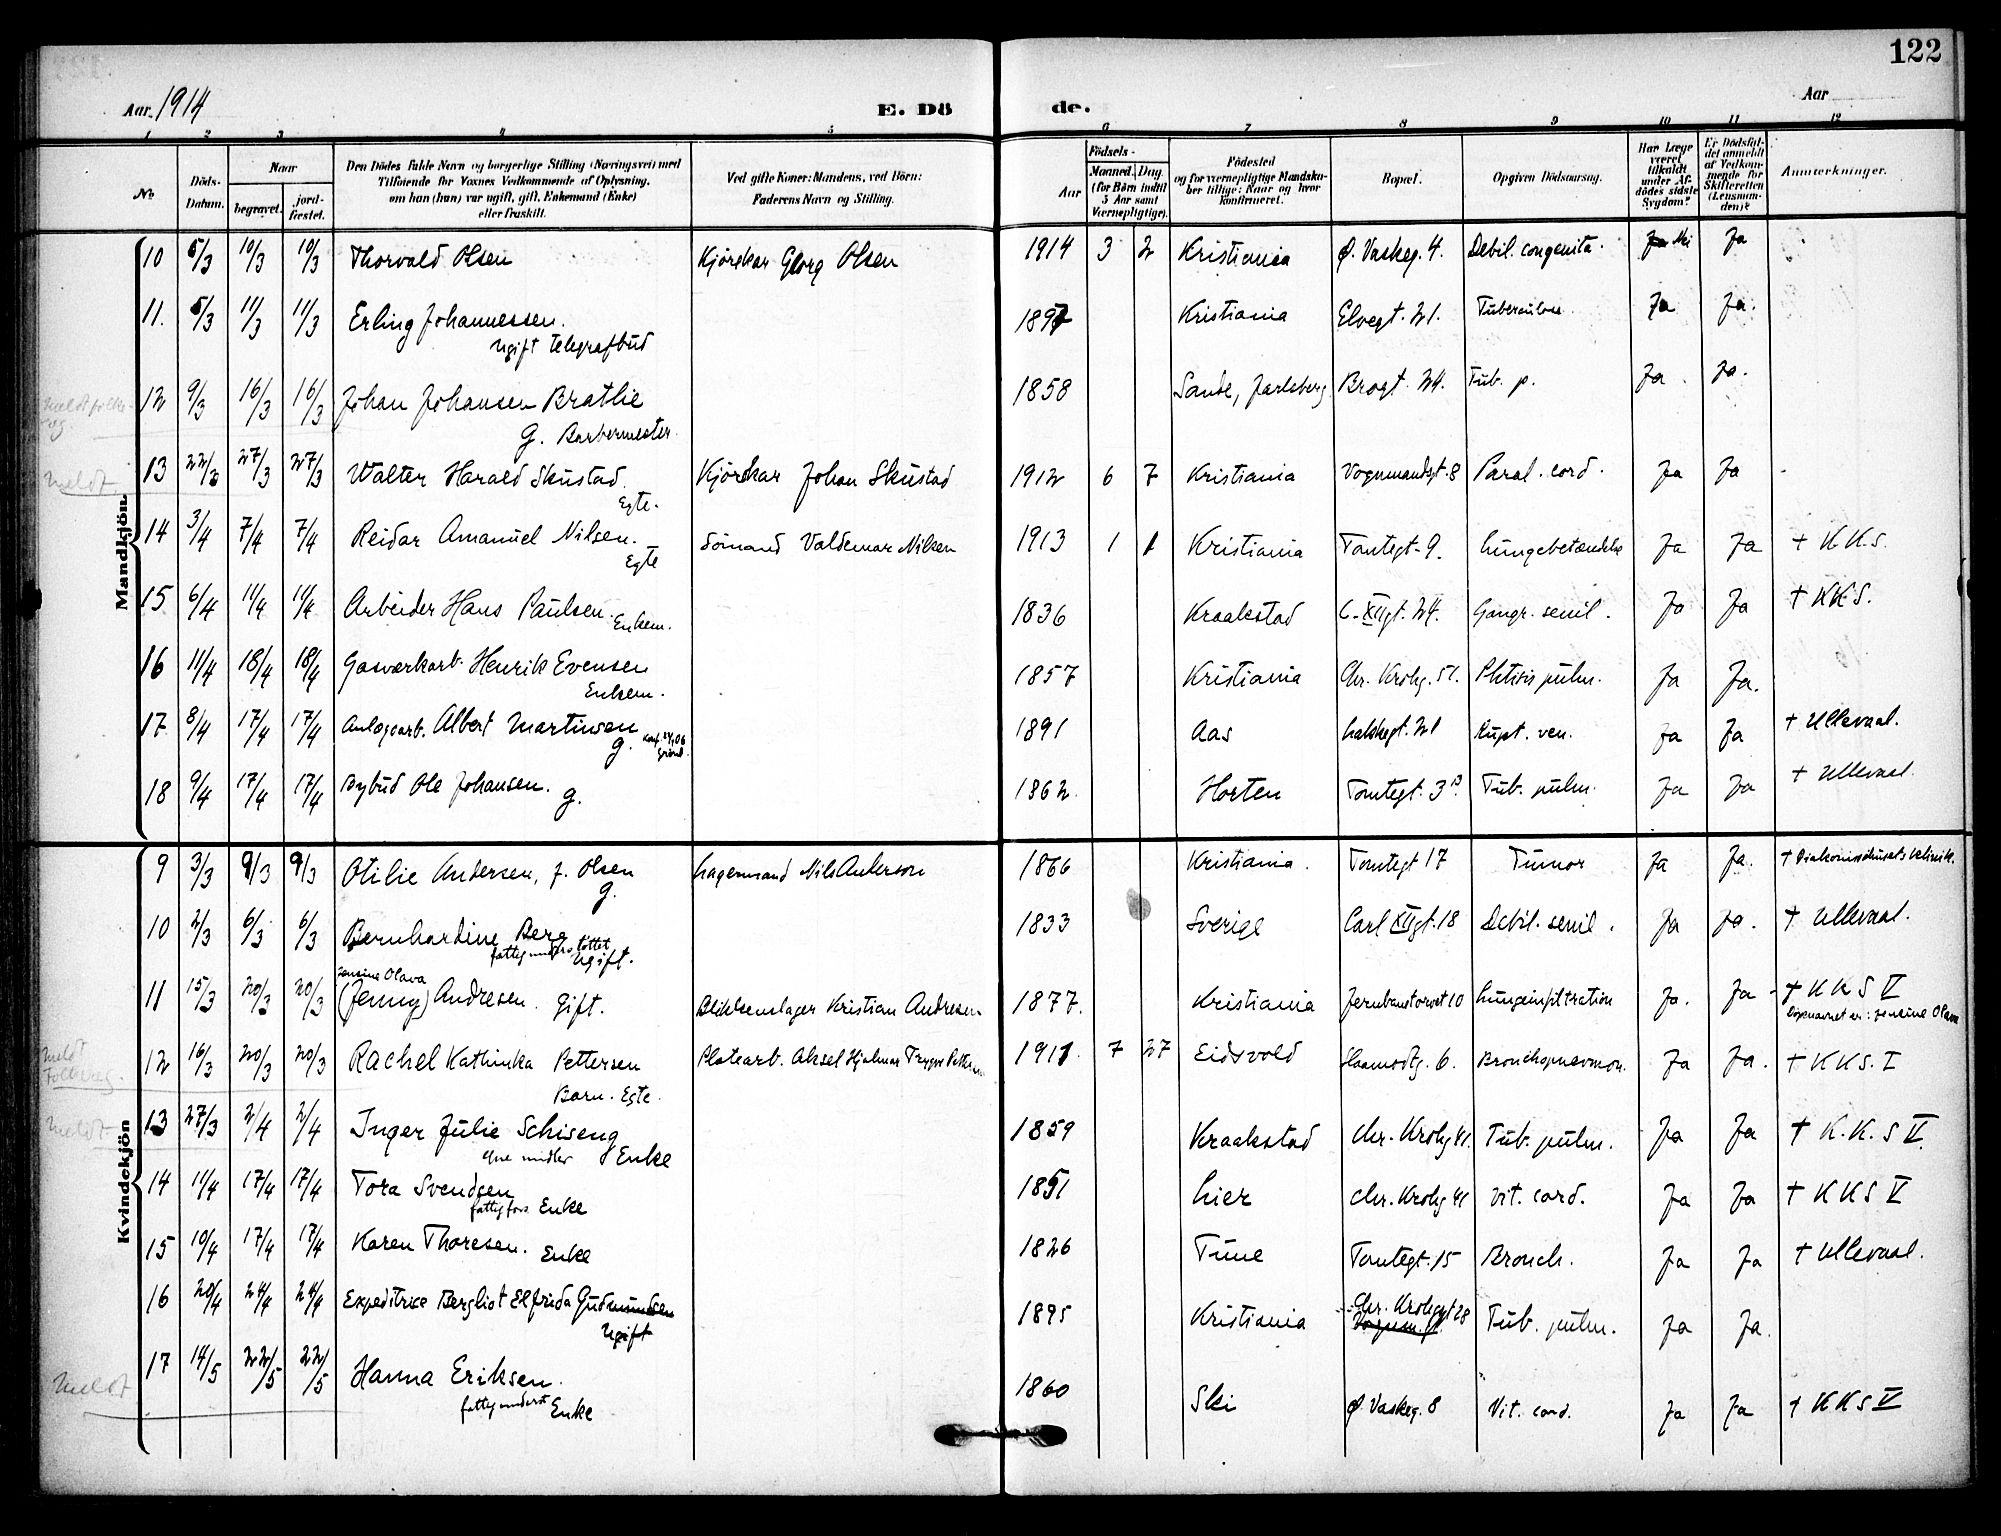 122
Aar 1914 E. Dö de. Aar
1 2 3 4 5 6 7 8 9 10 11 12
No. Döds-Datum. Naar begravet. jordfæstet. Den Dödes fulde Navn og borgerlige Stilling (Næringsvei) med Tilföiende for Voxnes Vedkommende af Oplysning, om han (hun) var ugift, gift, Enkemand (Enke) eller fraskilt. Ved gifte Koner: Mandens, ved Börn: Faderens Navn og Stilling. Födsels- Aar Maaned. Dag. (for Børn indtil 5 Aar samt Værnepligtige). Födested og for værnepligtige Mandskaber tillige: Naar og hvor Konfirmeret. Bopæl. Opgiven Dödsaarsag. Har Læge været tilkaldt under Afdödes sidste Sygdom? Er Dödsfaldet anmeldt af Vedkommende for Skifteretten (Lensmanden)? Anmærkninger.
Mandkjön.
10 5/3 10/3 10/3 Thorvald Olsen Kjörekar Georg Olsen 1914 3 2 Kristiania Ø. Vaskeg. 4. Debil. congenita. Nei Ja
11. 5/3 11/3 11/3 Erling Johannessen. 1897 Kristiania Elvegt. 21. Tuberculose Ja Ja.
Ugift telegrafbud
12 9/3 16/3 16/3 Johan Johansen Brathie 1858 Sande, Jarlsberg Brogt. 24. Tub. p. Ja. Ja.
G. Barbermester.
Meldt
13 22/3 27/3 27/3 Walter Harald Skustad. Kjörekar Johan Skustad 1912 6 7 Kristiania Vognmandsgt. 8 Paral. cord. Ja Ja
Egte.
14 3/4 7/4 7/4 Reidar Amanuel Nilsen. Sömand Valdemar Nilsen 1913 1 1 Kristiania Tomtegt. 9. Lungebetændelse Ja Ja + K.K.S.
Egte
15 6/4 11/4 11/4 Arbeider Hans Paulsen. Enkem. 1836 Kraakstad C. XIIgt. 24. Gangr. senil. Ja Ja + KKS.
16 11/4 18/4 18/4 Gasverkarb. Henrik Evensen 1857 Kristiania Chr. Krohg. 51. Phtisis pulm. Ja Ja.
Enkem.
17 8/4 17/4 17/4 Anlægsarb. Albert Martinsen 1891 Aas Lakkegt. 21 Rupt. ven. Ja Ja + Ullevaal.
g.
18 9/4 17/4 17/4 Bybud Ole Johansen. g. 1862 Horten Tomtegt. 3 Tub. pulm. Ja Ja + Ullevaal.
Kvindekjön
9 3/3 9/3 9/3 Otilie Andersen, f. Olsen Lagermand Nils Anderson 1866 Kristiania. Tomtegt 17 Tumor Ja Ja. + Diakonissehusets klinik.
g.
10 2/3 6/3 6/3 Bernhardine Berg 1833 Sverige Carl XIIgt. 18 Debil. senil. Ja Ja. + Ullevaal.
fattigunderstöttet Ugift.
Jensine Olava
11 15/3 20/3 20/3 (Jenny) Andresen. Gift. Blikkenslager Kristian Andresen 1877. Kristiania Jernbanetorvet 10 Lungeinfiltration Ja. Ja + K K S V
Döpenavnet er: Jensine Olava
Meldt
12 16/3 20/3 20/3 Rachel Kathinka Pettersen Platearb. Aksel Hjalmar Trygve Pettersen 1911. 7 27 Eidsvold Haamodtg. 6. Bronchopnevmon. Ja Ja. + KKS. I
Barn. Egte.
Meldt
13 27/3 2/4 2/4 Inger Julie Schiseng 1859 Kraakstad Chr. Krohg 41. Tub. pulm. Ja Ja + K.K.S V.
egne midler Enke
14 11/4 17/4 17/4 Tora Svendsen 1851 Lier Chr. Krohg 41 Vit. cord. Ja Ja + K K S V
fattigfors Enke
15 10/4 17/4 17/4 Karen Thoresen. Enke 1826 Tune Tomtegt. 15 Bronch. Ja Ja + Ullevaal.
16 20/4 24/4 24/4 Expeditrice Bergliot Elfrida Gudmundsen 1895 Kristiania Chr. Krohgsgt 28 Tub. pulm. Ja Ja.
Ugift
Meldt
17 14/5 22/5 22/5 Hanna Eriksen. 1860 Ski Ø. Vaskeg. 8 Vit. cord. Ja Ja + K K S V
fattigunderst Enke